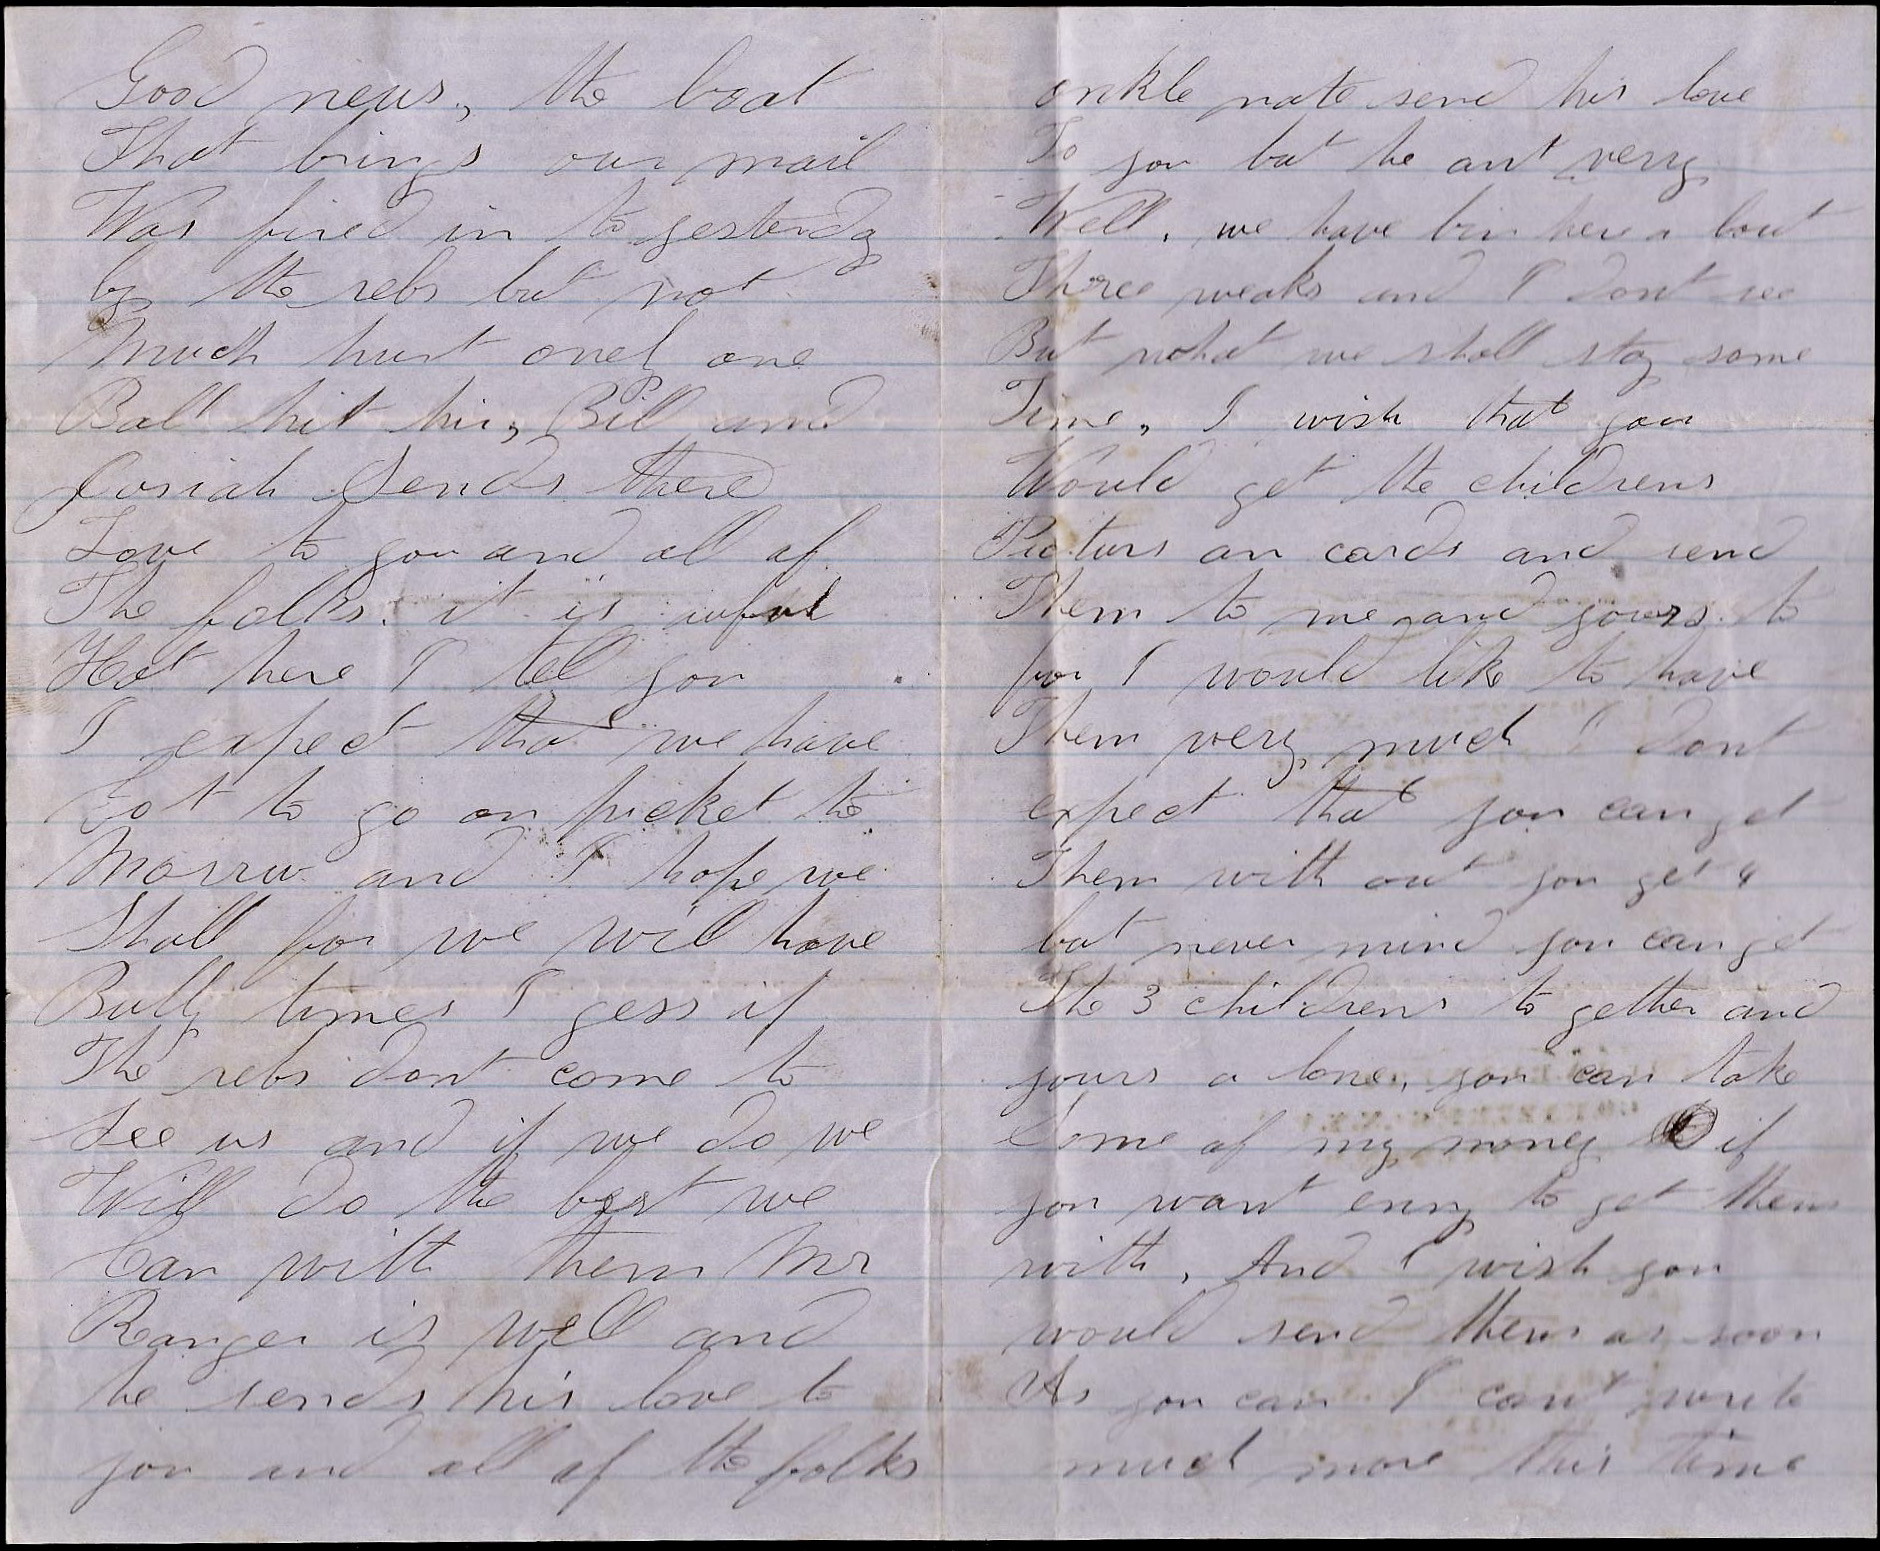 Good news, the boat
That brings our mail
Was fired in to yesterday
by the rebs but not
Much hurt onely one
Ball hit hir, Bill and
Josiah Sends there
Love to you and all of
The folks. it is awful
Hot here I tell you
I expect that we have
Got to go on picket to
Morrow and I hope we
Shall for we will have
Bully times I gess if
The rebs dont come to
See us and if we do we
Will do the best we
Can with them Mr
Ranger is well and
he sends his love to
you and all of the folks
onkle nate send his love
To you but he ant verry
Well, we have bin here a bout
Three weaks and I dont see
But what we shall stay some
Time, I wish that you
Would get the childrens
Picturs on cards and send
Them to me and yours to
for I would like to have
Them very much I dont
expect that you can get
Them with out you get 4
but never mind you can get
The 3 childrens to gether and
yours a lone, you can take
Some of my money if
you want enny to get them
with, And I wish you
would send them as soon
As you can I cant write
much more this time